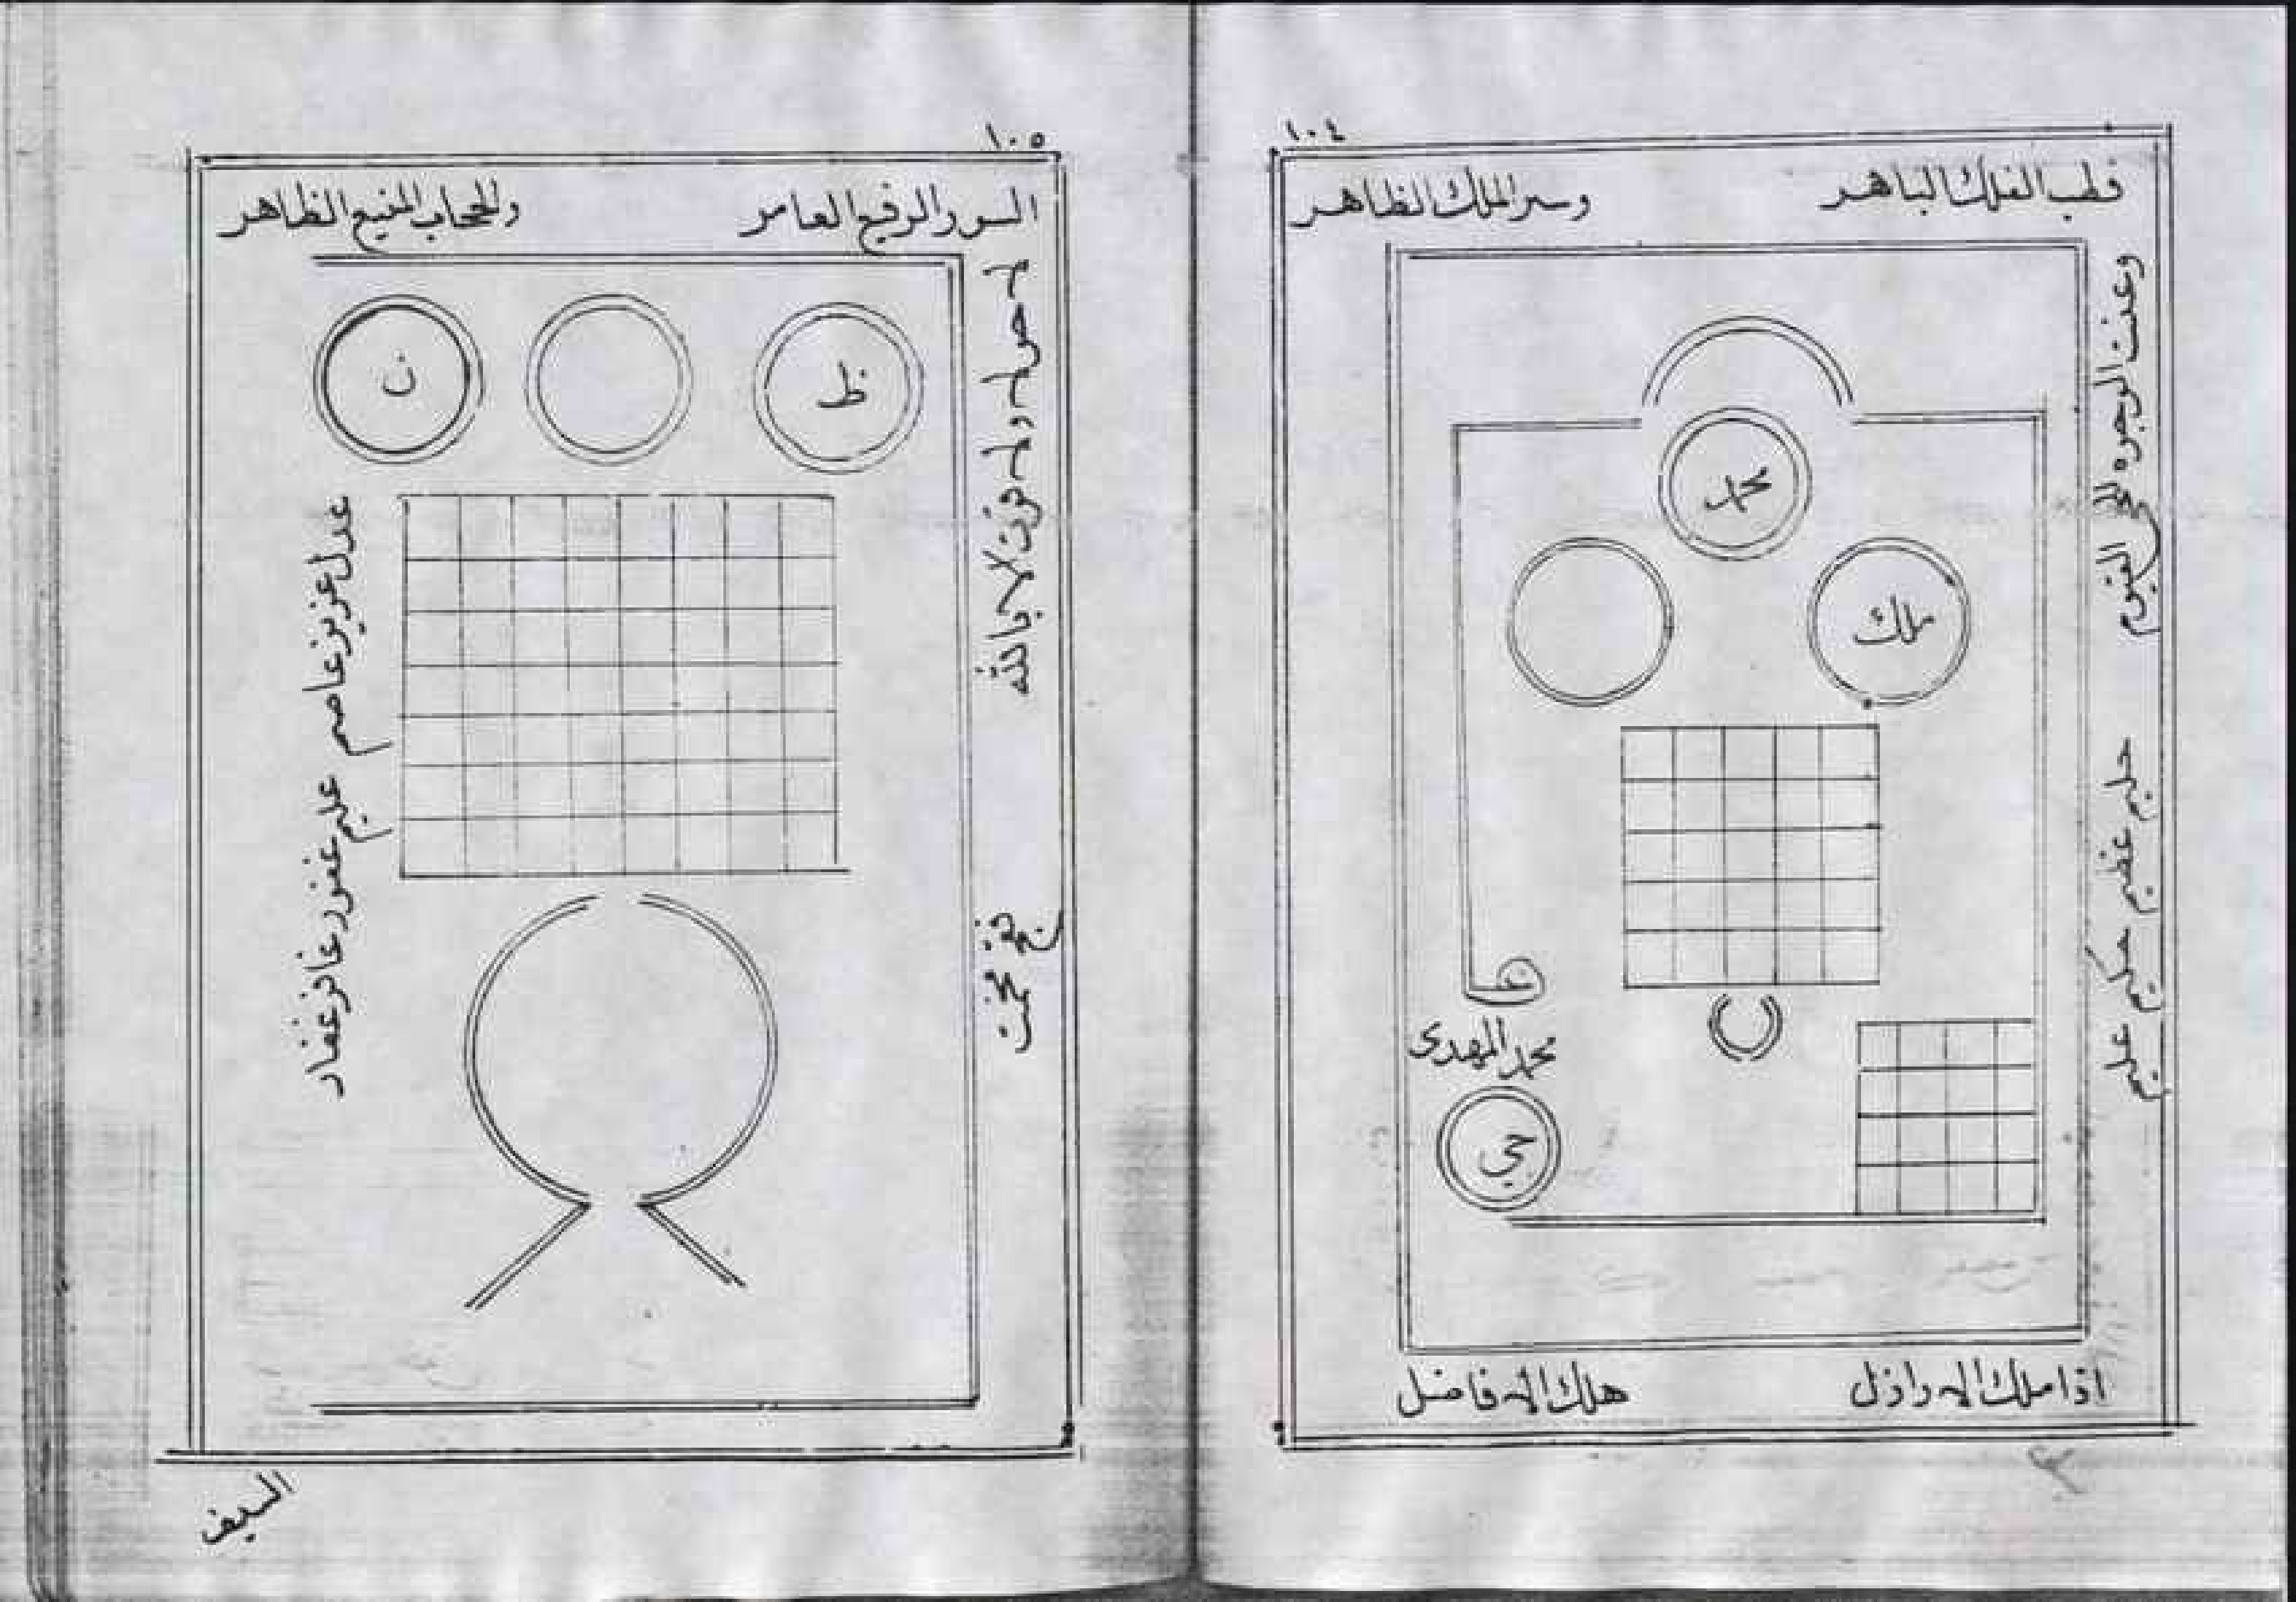 ١٠٤
قطب الفلك الباهر
وسر الملك الظاهر
وعنت الوجوه للحي القيوم
حليم عظيم حكيم عليم
محمد
ملك
محمد المهدى
حي
اذا ملك الاراذل
هلك الافاضل
١٠٥
السور الرفيع العامر
والحجاب المنيع الظاهر
لا حول ولا قوة الا بالله
ظ
ن
عدل عزيز عاصم عليم غفور غافر غفار
السيف